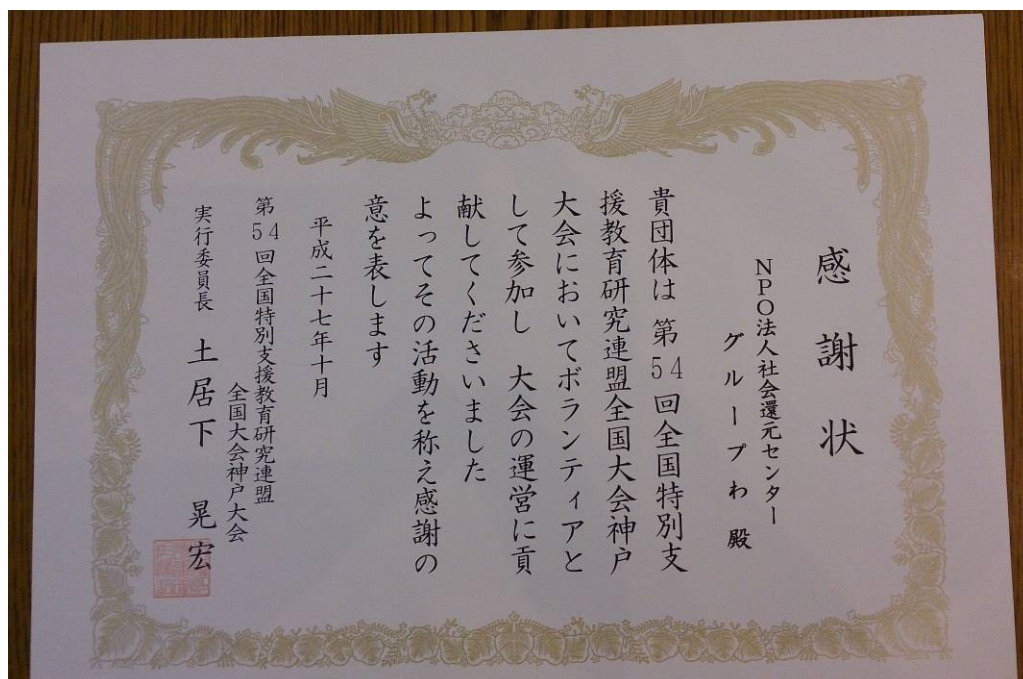 感謝状
NPO法人社会還元センター
グループわ 殿
貴団体は 第54回全国特別支
援教育研究連盟全国大会神戸
大会においてボランティアと
して参加し 大会の運営に貢
献してくださいました
よってその活動を称え感謝の
意を表します
平成二十七年十月
第54回全国特別支援教育研究連盟
全国大会神戸大会
実行委員長 土居下 晃宏